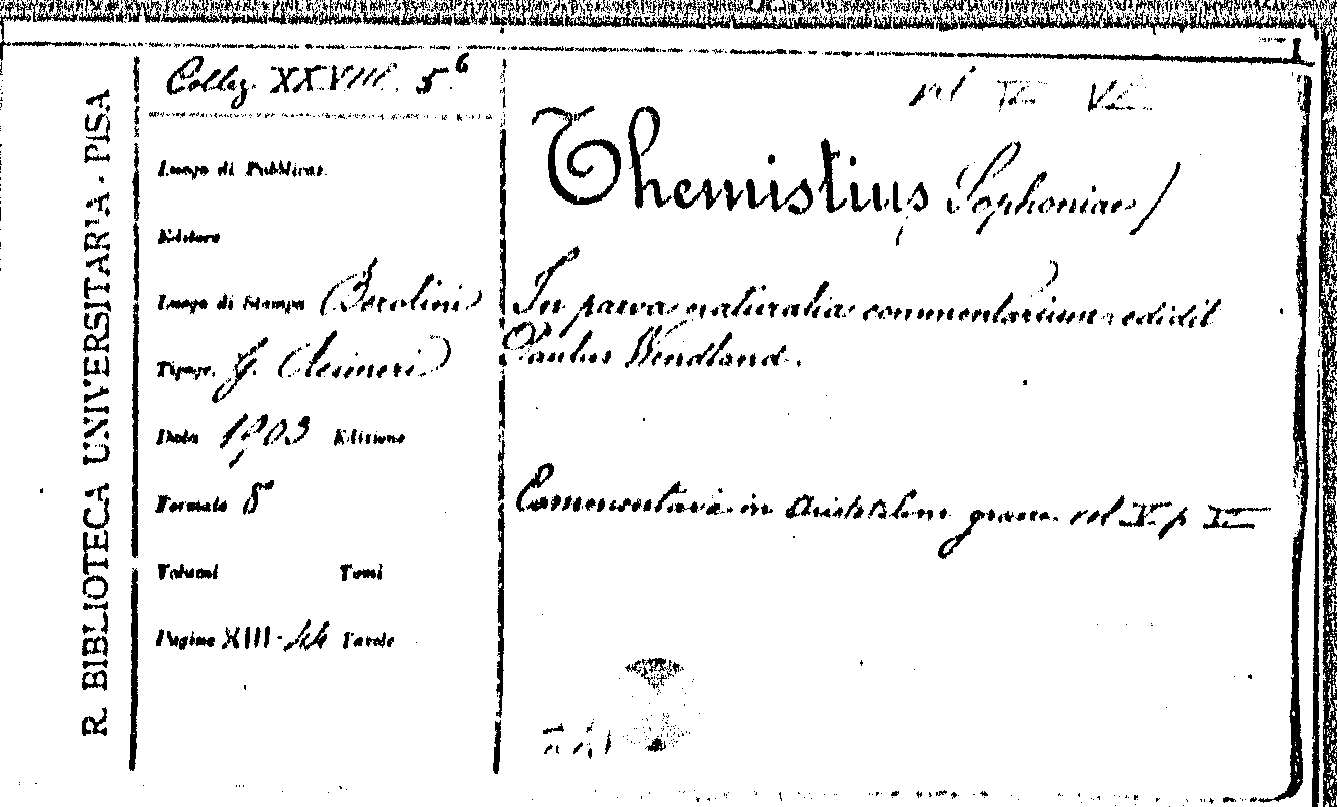 R. BIBLIOTECA UNIVERSITARIA - PISA
Collez. XXVIII. 5⁶
Luogo di Pubblicaz.
Editore
Luogo di Stampa Berolini
Tipogr. G. Reimeri
Data 1903 Edizione
Formato 8°
Volumi Tomi
Pagine XIII-44 Tavole
Themistius, Sophoniae)
In parva naturalia commentarium edidit
Paulus Wendland.
Commentaria in Aristotelem graeca vol V p